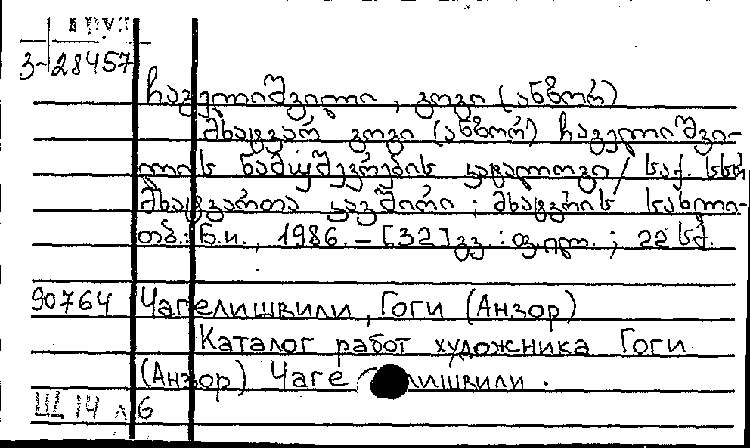 Груз
3-28457
ჩაგელიშვილი, გოგი (ანზორ)
მხატვარ გოგი (ანზორ) ჩაგელიშვი-
ლის ნამუშევრების კატალოგი / საქ. სსრ
მხატვართა კავშირი ; მხატვრის სახლი-
თბ.: ბ.ი., 1986. - [32] გვ. : ფოტ. ; 22 სმ.
90764 Чагелишвили, Гоги (Анзор)
Каталог работ художника Гоги
(Анзор) Чагелишвили.
Щ 14 л 6